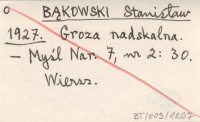 o BĄKOWSKI Stanisław
1927. Groza nadskalna.
– Myśl Nar. 7, nr 2: 30.
Wiersz.
BT/003/1287